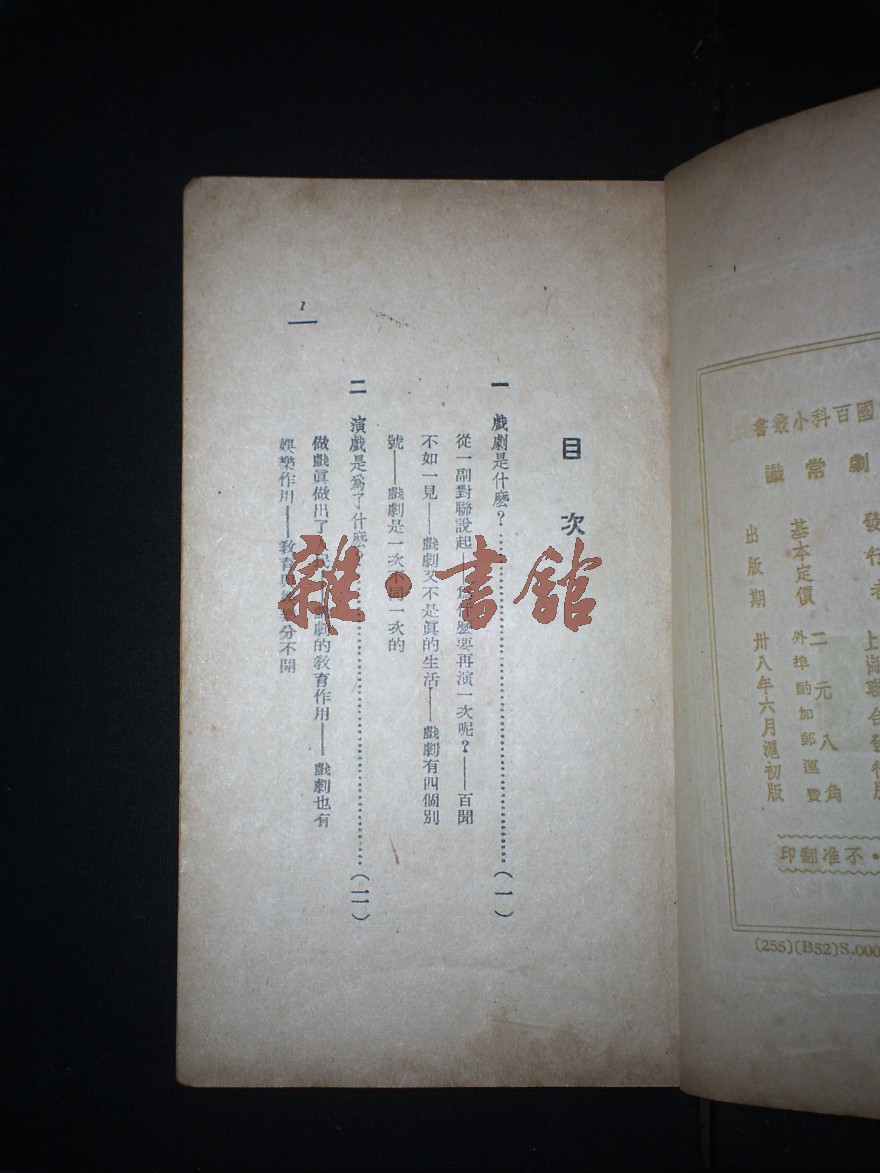 國百科小叢書
劇常識
發行者 上海聯合發行所
基本定價 二元八角
外埠酌加郵運費
出版期 卅八年六月滬初版
·不准翻印
(255)(B52)S.000
目次
一 戲劇是什麽?(一)
從一副對聯說起——爲什麽要再演一次呢?——百聞
不如一見——戲劇又不是眞的生活——戲劇有四個別
號——戲劇是一次不同一次的
二 演戲是爲了什麽?(一一)
做戲眞做出了人民 戲劇的教育作用——戲劇也有
娛樂作用——教育與 分不開
1
雜·書館